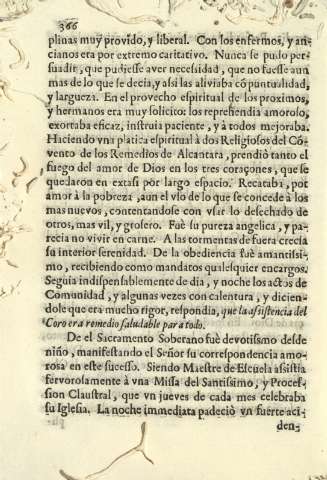 366
plinas muy provido, y liberal. Con los enfermos, y an-
cianos era por extremo caritativo. Nunca se pudo per-
suadir, que pudiesse aver necessidad, que no fuesse aun
mas de lo que se decia, y assi las aliviaba cõ puntualidad,
y largueza. En el provecho espiritual de los proximos,
y hermanos era muy solicito: los reprehendia amoroso,
exortaba eficaz, instruia paciente, y à todos mejoraba.
Haciendo vna platica espiritual à dos Religiosos del Cõ-
vento de los Remedios de Alcantara, prendiò tanto el
fuego del amor de Dios en los tres coraçones, que se
quedaron en extasi por largo espacio. Recataba, por
amor à la pobreza, aun el vso de lo que se concede à los
mas nuevos, contentandose con vsar lo desechado de
otros, mas vil, y grosero. Fuè su pureza angelica, y pa-
recia no vivir en carne. A las tormentas de fuera crecia
su interior serenidad. De la obediencia fuè amantissi-
mo, recibiendo como mandatos qualesquier encargos.
Seguia indispensablemente de dia, y noche los actos de
Comunidad, y algunas vezes con calentura, y dicien-
dole que era mucho rigor, respondia, que la assistencia del
Coro era remedio saludable para todo.
De el Sacramento Soberano fuè devotissimo desde
niño, manifestando el Señor su correspondencia amo-
rosa en este sucesso. Siendo Maestre de Escuela assistia
fervorosamente à vna Missa del Santissimo, y Proces-
sion Claustral, que vn jueves de cada mes celebraba
su Iglesia. La noche immediata padeciò vn fuerte aci-
den-